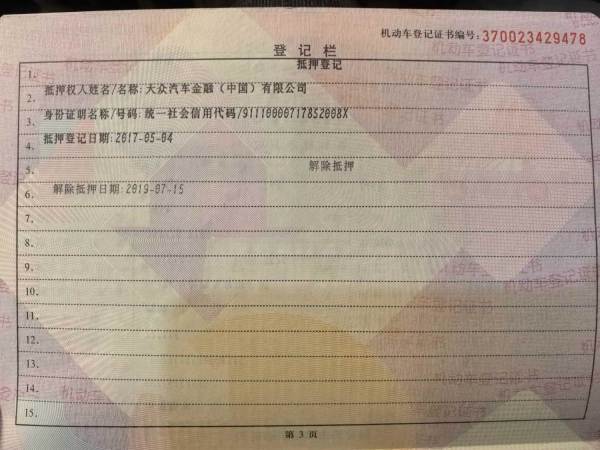 机动车登记证书编号:370023429478
登记栏
1. 抵押登记
2. 抵押权人姓名/名称:大众汽车金融(中国)有限公司
3. 身份证明名称/号码:统一社会信用代码/91110000717852008X
4. 抵押登记日期:2017-05-04
5. 解除抵押
6. 解除抵押日期:2019-07-15
7.
8.
9.
10.
11.
12.
13.
14.
15.
第 3 页